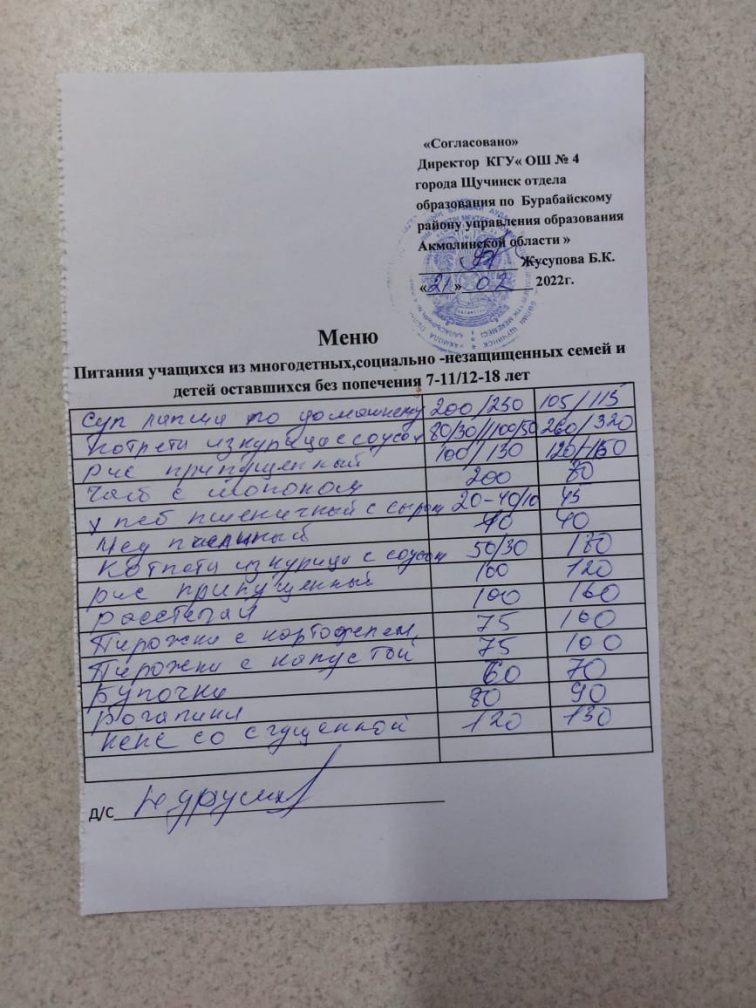 «Согласовано»
Директор КГУ« ОШ № 4
города Щучинск отдела
образования по Бурабайскому
району управления образования
Акмолинской области »
Жусупова Б.К.
«21» 02 2022г.
Меню
Питания учащихся из многодетных,социально -незащищенных семей и
детей оставшихся без попечения 7-11/12-18 лет
Суп лапша по домашнему 200/250 105/115
Котлета из курицы с соусом 80/30//100/50 260/320
рис припущенный 100/130 120/150
Чай с молоком 200 80
Хлеб пшеничный с сыром 20-40/10 45
Мед пчелиный 10 40
Котлета из курицы с соусом 50/30 180
рис припущенный 100 120
Расстегай 100 160
Пирожки с картофелем, 75 100
Пирожки с капустой 75 100
Булочки 60 70
Рогалики 80 90
Кекс со сгущенкой 120 130
Д/С